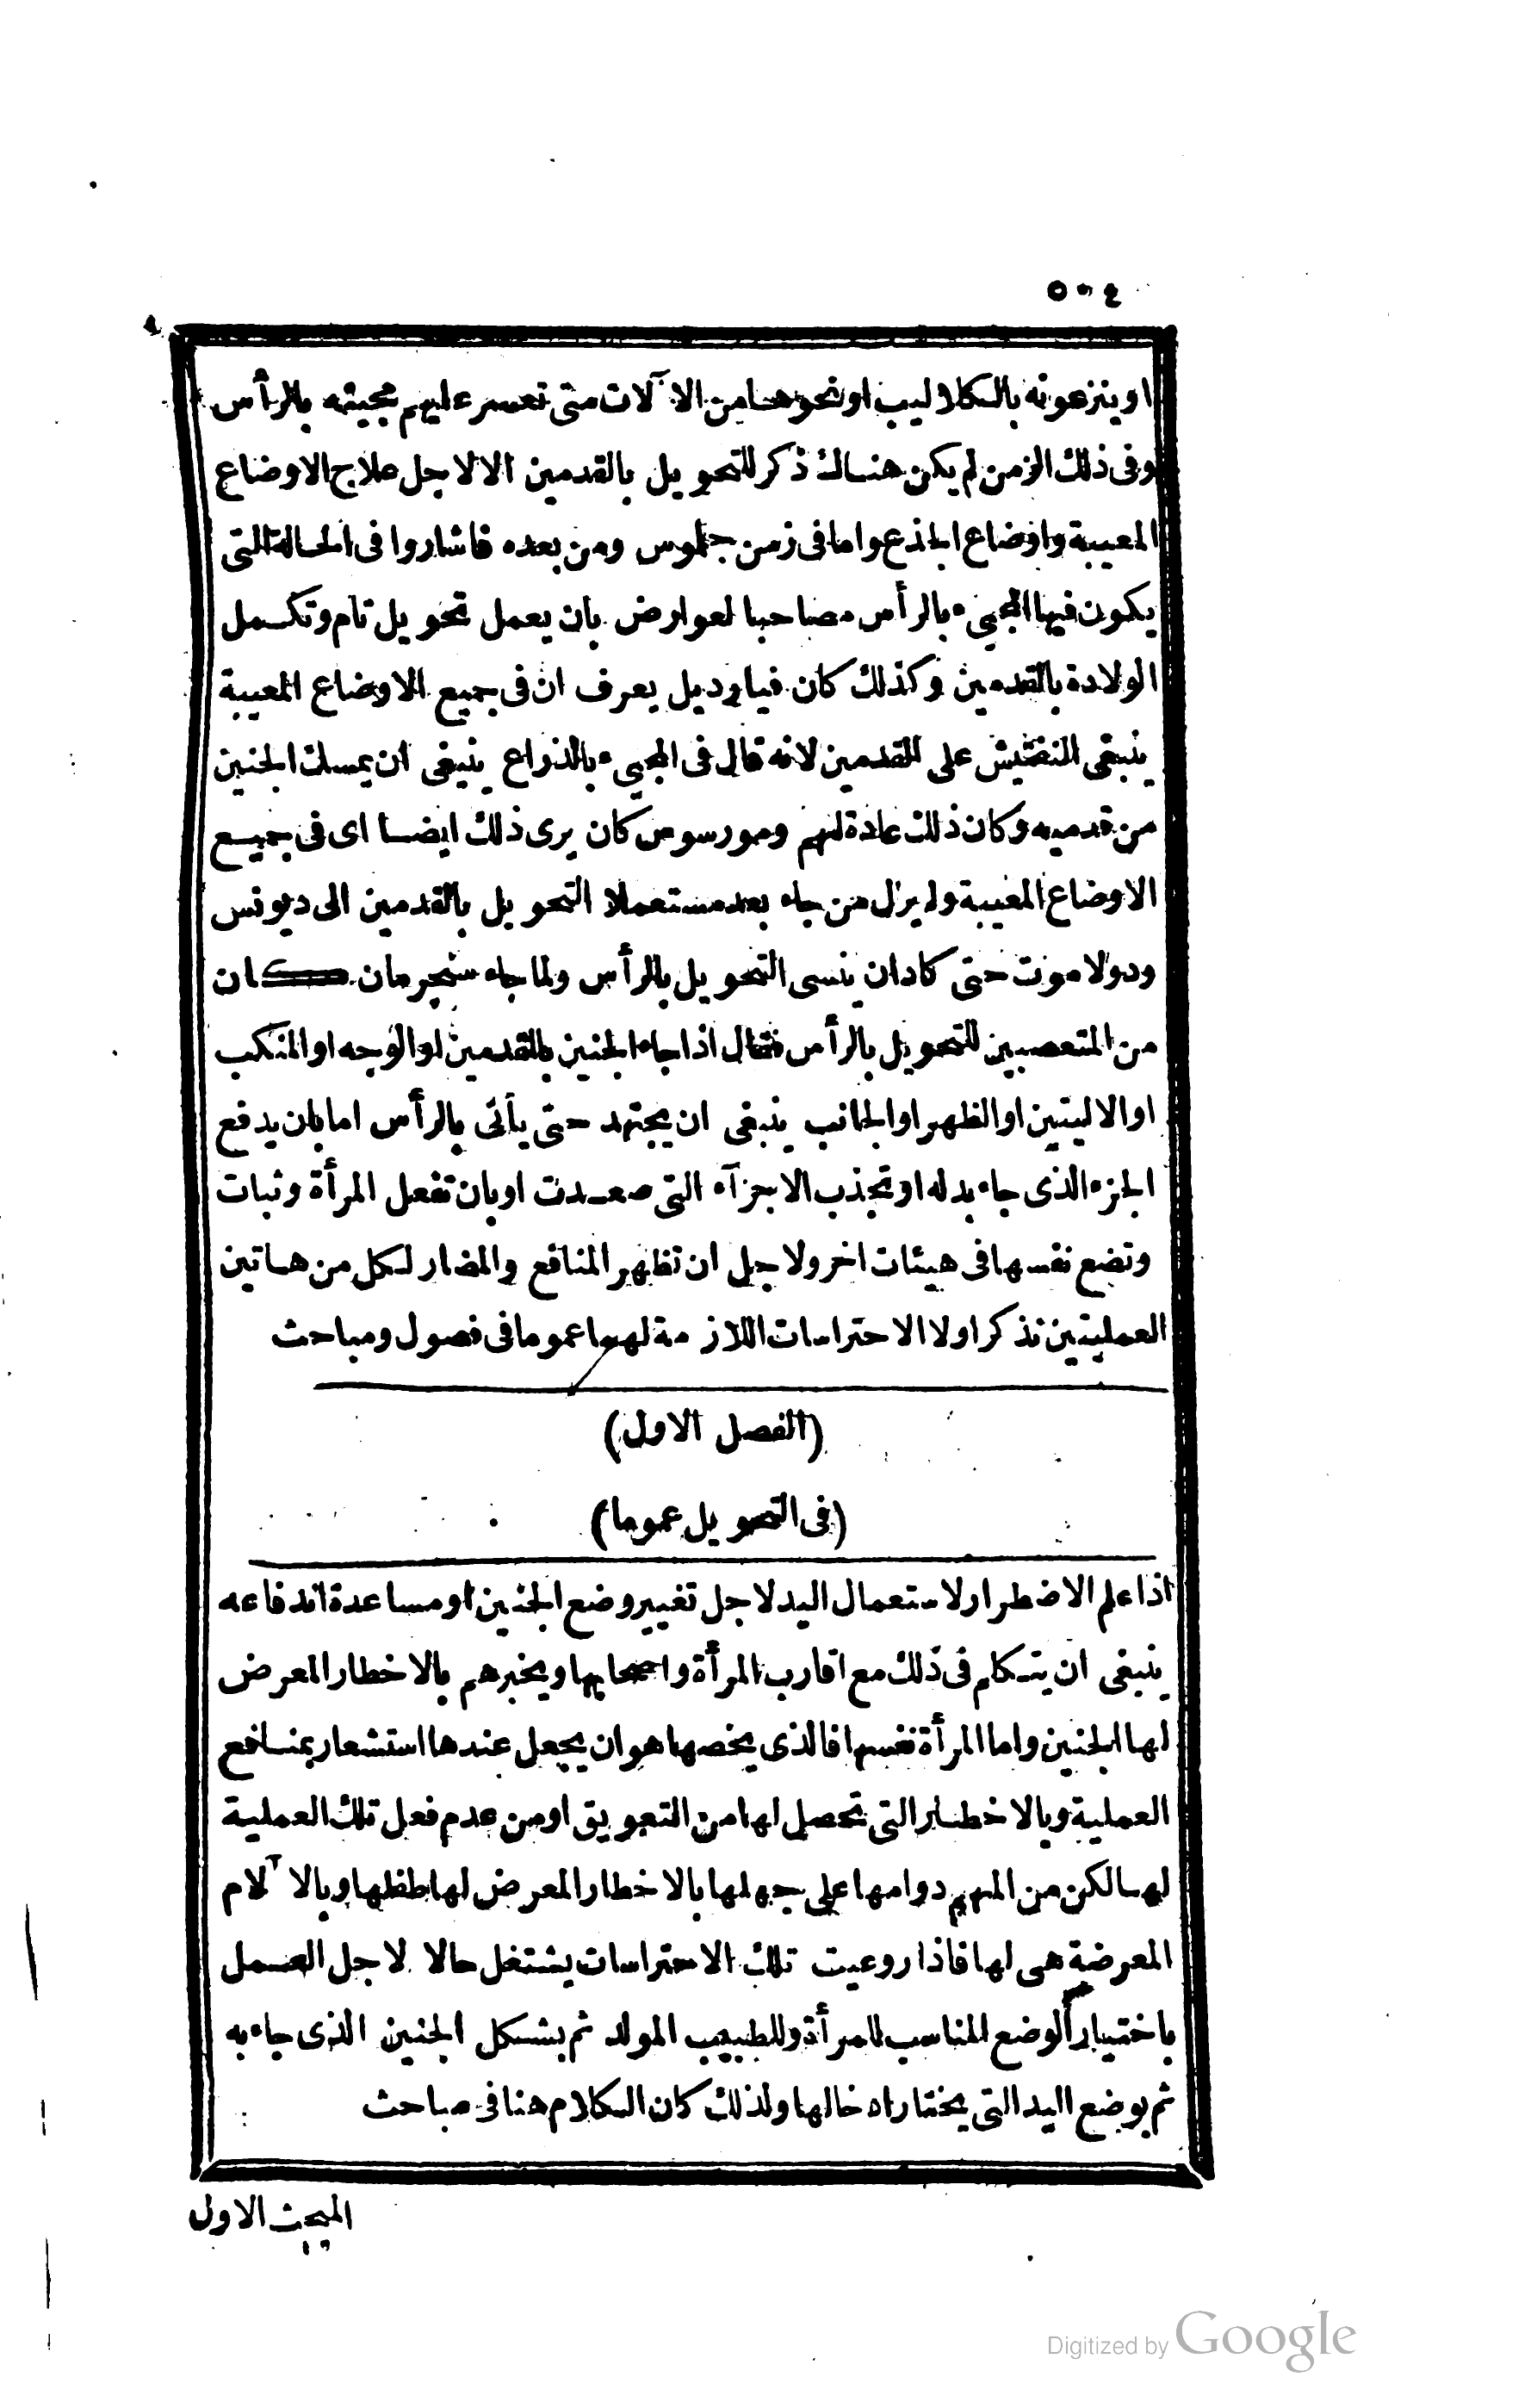 ٥٠٤
او ينزعونه بالكلاليب او نحوها من الآلات متى تعسر عليهم مجيئه بالرأس
وفى ذلك الزمن لم يكن هناك ذكر للتحويل بالقدمين الا لاجل علاج الاوضاع
المعيبة واوضاع الجذع واما فى زمن جلوس ومن بعده فاشاروا فى الحالة التى
يكون فيها المجيء بالرأس مصاحبا لعوارض بان يعمل تحويل تام وتكمل
الولادة بالقدمين وكذلك كان فياورديل يعرف ان فى جميع الاوضاع المعيبة
ينبغى التفتيش على القدمين لانه قال فى المجيء بالذراع ينبغى ان يمسك الجنين
من قدميه وكان ذلك عادة لهم ومورسوس كان يرى ذلك ايضا اى فى جميع
الاوضاع المعيبة ولم يزل من جاء بعد مستعملا التحويل بالقدمين الى ديونس
ودولاموت حتى كاد ان ينسى التحويل بالرأس ولما جاء سنجرمان كان
من المتعصبين للتحويل بالرأس فقال اذا جاء الجنين بالقدمين او الوجه او المنكب
او الاليتين او الظهر او الجانب ينبغى ان يجتهد حتى يأتى بالرأس اما بان يدفع
الجزء الذى جاء بدله او تجذب الاجزآء التى صعدت او بان تفعل المرأة وثبات
وتضع نفسها فى هيئات اخر ولاجل ان تظهر المنافع والمضار لكل من هاتين
العمليتين نذكر اولا الاحتراسات اللازمة لهما عموما فى فصول ومباحث
(الفصل الاول)
(فى التحويل عموما)
اذا علم الاضطرار لاستعمال اليد لاجل تغيير وضع الجنين او مساعدة اندفاعه
ينبغى ان يتكلم فى ذلك مع اقارب المرأة واصحابها ويخبرهم بالاخطار المعرض
لها الجنين واما المرأة نفسها فالذى يخصها هو ان يجعل عندها استشعار بمنافع
العملية وبالاخطار التى تحصل لها من التعويق او من عدم فعل تلك العملية
لها لكن من المهم دوامها على جهلها بالاخطار المعرض لها طفلها وبالآلام
المعرضة هى لها فاذا روعيت تلك الاحتراسات يشتغل حالا لاجل العمل
باختيار الوضع المناسب للمرأة وللطبيب المولد ثم بشكل الجنين الذى جاء به
ثم بوضع اليد التى يختار ادخالها ولذلك كان الكلام هنا فى مباحث
المبحث الاول
Digitized by Google